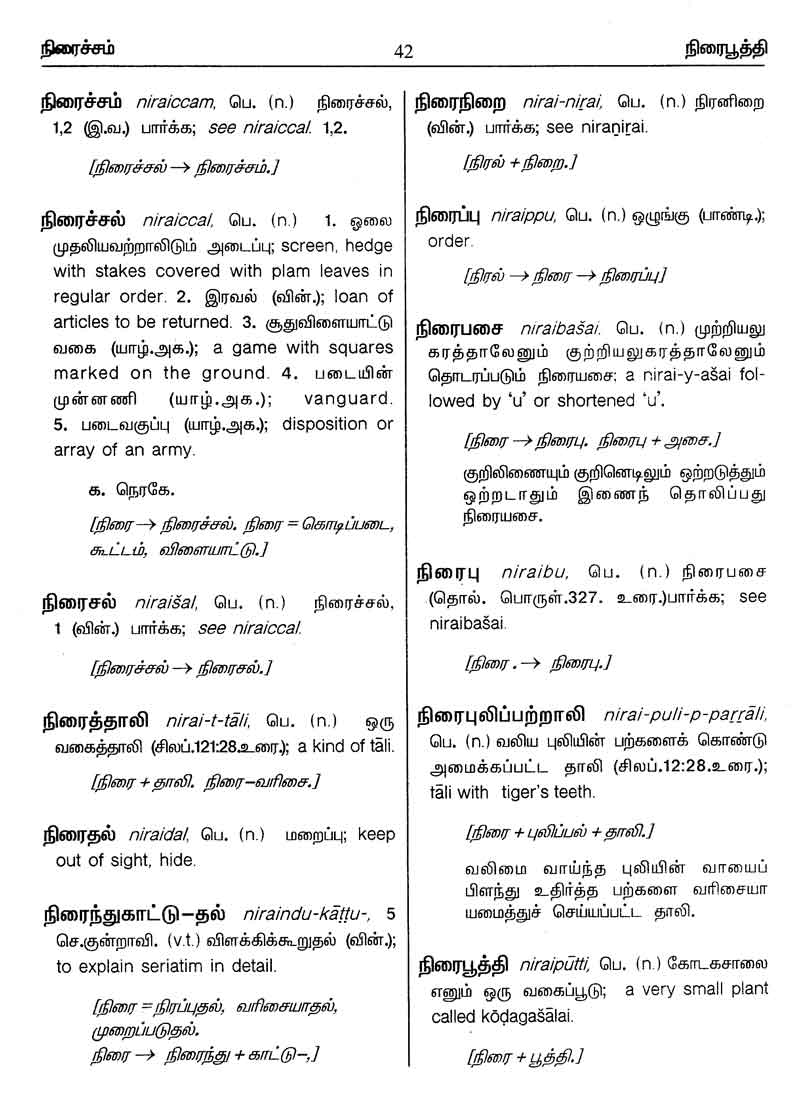 நிரைச்சம் 42 நிரைபூத்தி
நிரைச்சம் niraiccam, பெ. (n.) நிரைச்சல்,
1,2 (இ.வ.) பார்க்க; see niraiccal. 1,2.
[நிரைச்சல் → நிரைச்சம்.]
நிரைச்சல் niraiccal, பெ. (n.) 1. ஓலை
முதலியவற்றாலிடும் அடைப்பு; screen, hedge
with stakes covered with plam leaves in
regular order. 2. இரவல் (வின்.); loan of
articles to be returned. 3. சூதுவிளையாட்டு
வகை (யாழ்.அக.); a game with squares
marked on the ground. 4. படையின்
முன்னணி (யாழ்.அக.); vanguard.
5. படைவகுப்பு (யாழ்.அக.); disposition or
array of an army.
க. நெரகே.
[நிரை → நிரைச்சல். நிரை = கொடிப்படை,
கூட்டம், விளையாட்டு.]
நிரைசல் niraišal, பெ. (n.) நிரைச்சல்,
1 (வின்.) பார்க்க; see niraiccal.
[நிரைச்சல் → நிரைசல்.]
நிரைத்தாலி nirai-t-tāli, பெ. (n.) ஒரு
வகைத்தாலி (சிலப்.121:28.உரை.); a kind of tāli.
[நிரை + தாலி. நிரை–வரிசை.]
நிரைதல் niraidal, பெ. (n.) மறைப்பு; keep
out of sight, hide.
நிரைந்துகாட்டு–தல் niraindu-kāṭṭu-, 5
செ.குன்றாவி. (v.t.) விளக்கிக்கூறுதல் (வின்.);
to explain seriatim in detail.
[நிரை = நிரப்புதல், வரிசையாதல்,
முறைப்படுதல்.
நிரை → நிரைந்து + காட்டு–,]
நிரைநிறை nirai-niṟai, பெ. (n.) நிரனிறை
(வின்.) பார்க்க; see niraṉiṟai.
[நிரல் + நிறை.]
நிரைப்பு niraippu, பெ. (n.) ஒழுங்கு (பாண்டி.);
order.
[நிரல் → நிரை → நிரைப்பு]
நிரைபசை niraibašai, பெ. (n.) முற்றியலு
கரத்தாலேனும் குற்றியலுகரத்தாலேனும்
தொடரப்படும் நிரையசை; a nirai-y-ašai fol-
lowed by 'u' or shortened 'u'.
[நிரை → நிரைபு. நிரைபு + அசை.]
குறிலிணையும் குறினெடிலும் ஒற்றடுத்தும்
ஒற்றடாதும் இணைந் தொலிப்பது
நிரையசை.
நிரைபு niraibu, பெ. (n.) நிரைபசை
(தொல். பொருள்.327. உரை.)பார்க்க; see
niraibašai.
[நிரை . → நிரைபு.]
நிரைபுலிப்பற்றாலி nirai-puli-p-paṟṟāli,
பெ. (n.) வலிய புலியின் பற்களைக் கொண்டு
அமைக்கப்பட்ட தாலி (சிலப்.12:28.உரை.);
tāli with tiger's teeth.
[நிரை + புலிப்பல் + தாலி.]
வலிமை வாய்ந்த புலியின் வாயைப்
பிளந்து உதிர்த்த பற்களை வரிசையா
யமைத்துச் செய்யப்பட்ட தாலி.
நிரைபூத்தி niraipūtti, பெ. (n.) கோடகசாலை
எனும் ஒரு வகைப்பூடு; a very small plant
called kōḍagašālai.
[நிரை + பூத்தி.]